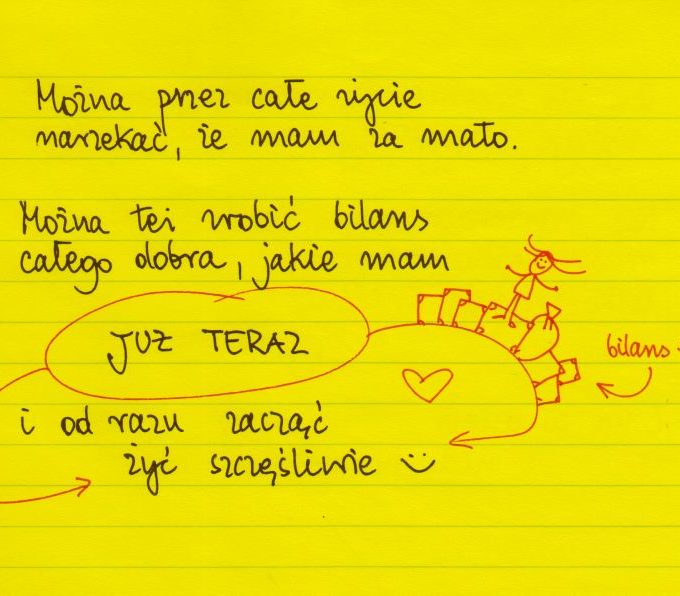 Można przez całe życie
narzekać, że mam za mało.
Można też zrobić bilans
całego dobra, jakie mam
JUŻ TERAZ
bilans
i od razu zacząć
żyć szczęśliwie